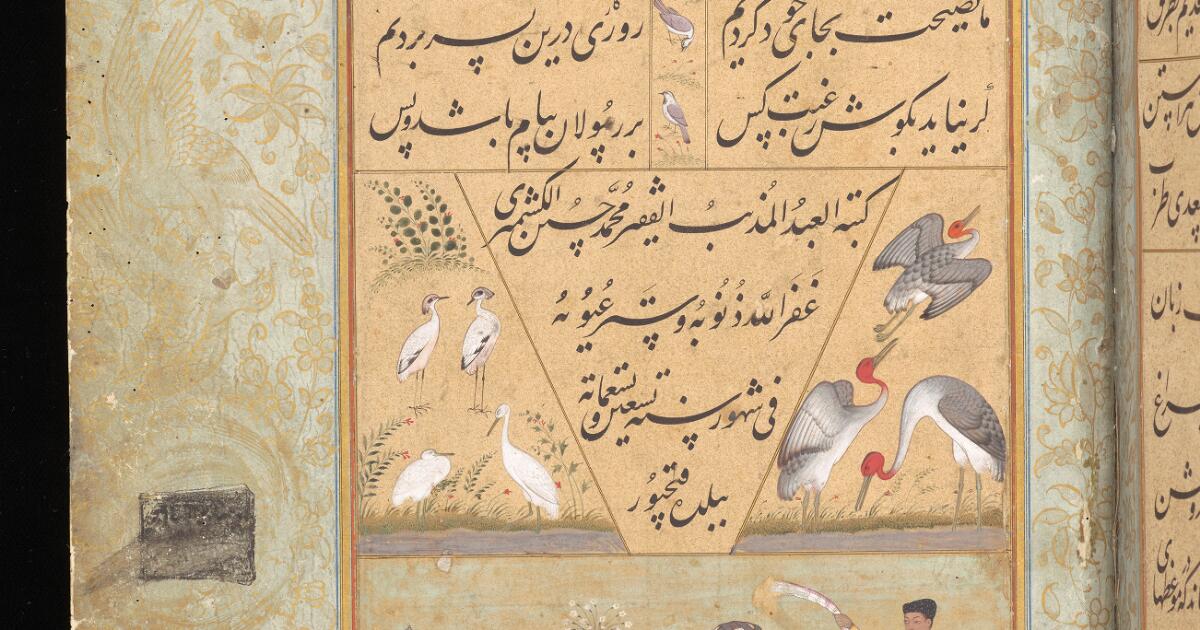 ما نصیحت بجای خود کردیم
روزگاری درین بسر بردیم
گر نیاید بگوش رغبت کس
بر رسولان پیام باشد و بس
کتبه العبد المذنب الفقیر محمد حسین الکشمیری
غفر الله ذنوبه و ستر عیوبه
فی شهور سنه تسعین و تسعمائة
ببلده فتحپور